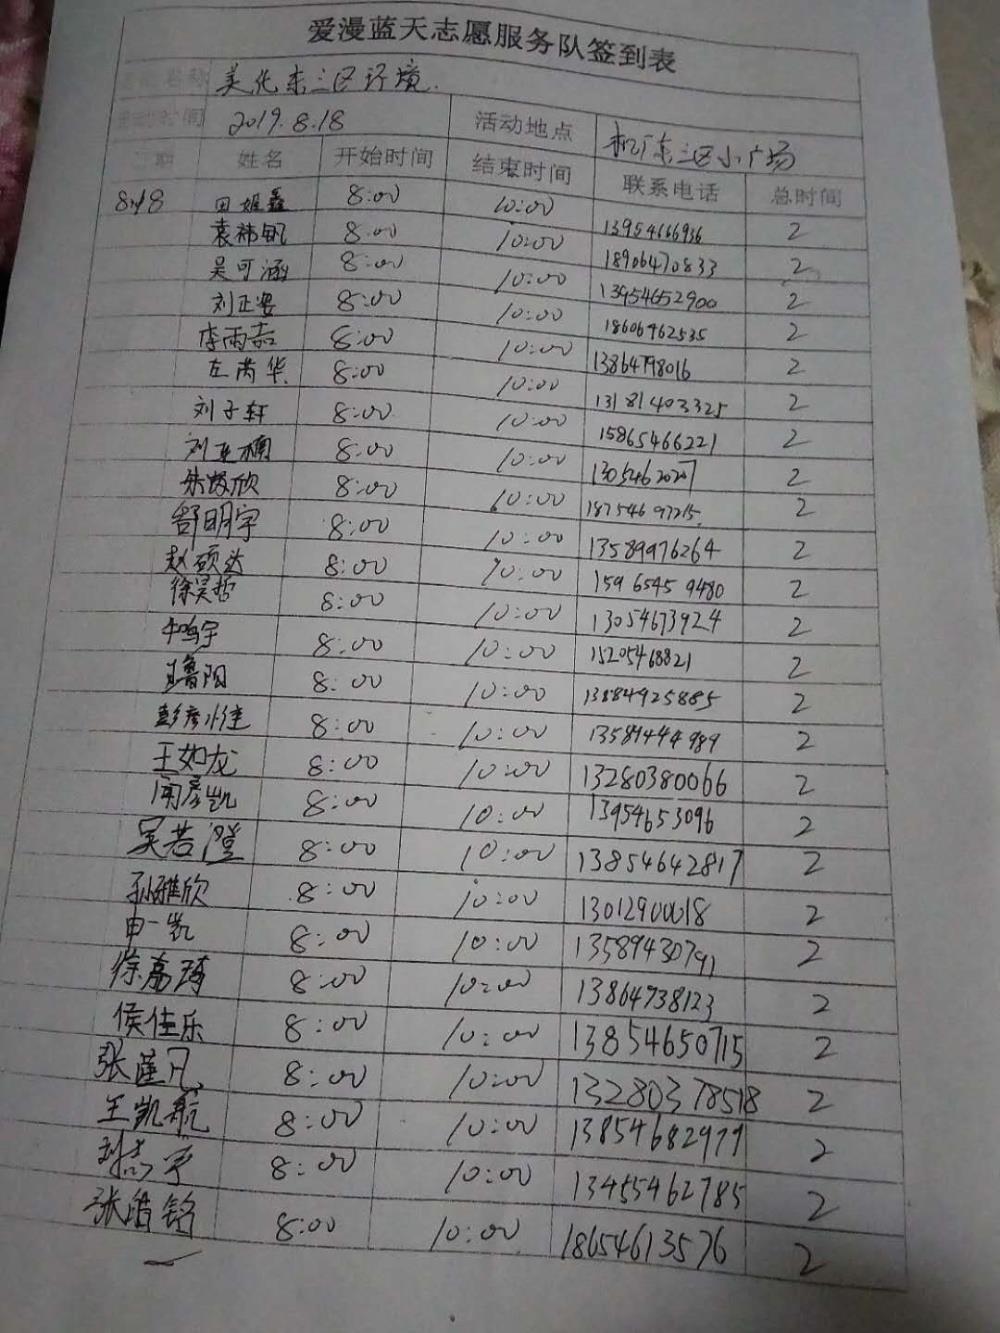 爱漫蓝天志愿服务队签到表
活动名称 美化东三区环境.
活动时间 2019.8.18 活动地点 机厂东三区小广场
日期 姓名 开始时间 结束时间 联系电话 总时间
8.18 田姬鑫 8:00 10:00 13954166936 2
袁祎钒 8:00 10:00 18906470833 2
吴可涵 8:00 10:00 13954652900 2
刘正姿 8:00 10:00 18606462535 2
李雨嘉 8:00 10:00 13864798016 2
左芮华 8:00 10:00 13181403325 2
刘子轩 8:00 10:00 15865466221 2
刘亚楠 8:00 10:00 13054620207 2
朱婧欣 8:00 10:00 18754697215 2
舒明宇 8:00 10:00 13589976264 2
赵硕达 8:00 10:00 15965459480 2
徐昊哲 8:00 10:00 13054673924 2
牛鸣宇 8:00 10:00 15205468821 2
鲁阳 8:00 10:00 13884925885 2
彭彦 8:00 10:00 13589444989 2
王如龙 8:00 10:00 13280380066 2
周彦凯 8:00 10:00 13954653096 2
吴若澄 8:00 10:00 13854642817 2
孙雅欣 8:00 10:00 13012900018 2
申一凯 8:00 10:00 13589430791 2
徐嘉琦 8:00 10:00 13864738123 2
侯佳乐 8:00 10:00 13854650715 2
张蓬凡 8:00 10:00 13280378518 2
王凯航 8:00 10:00 13854682979 2
刘喆宇 8:00 10:00 13455462785 2
张皓铭 8:00 10:00 18654613576 2